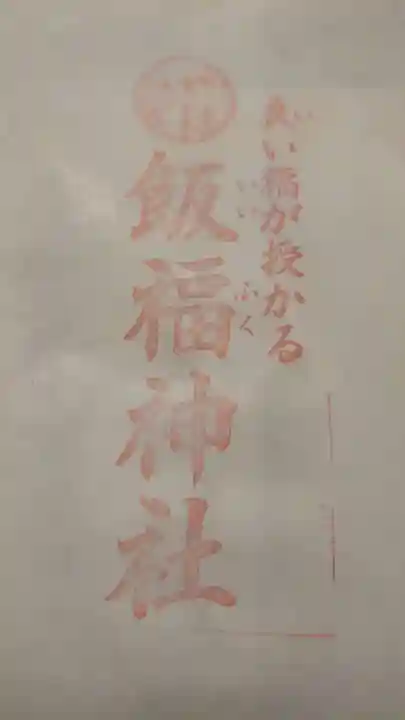 良い福が授かる
飯福神社
いいふく